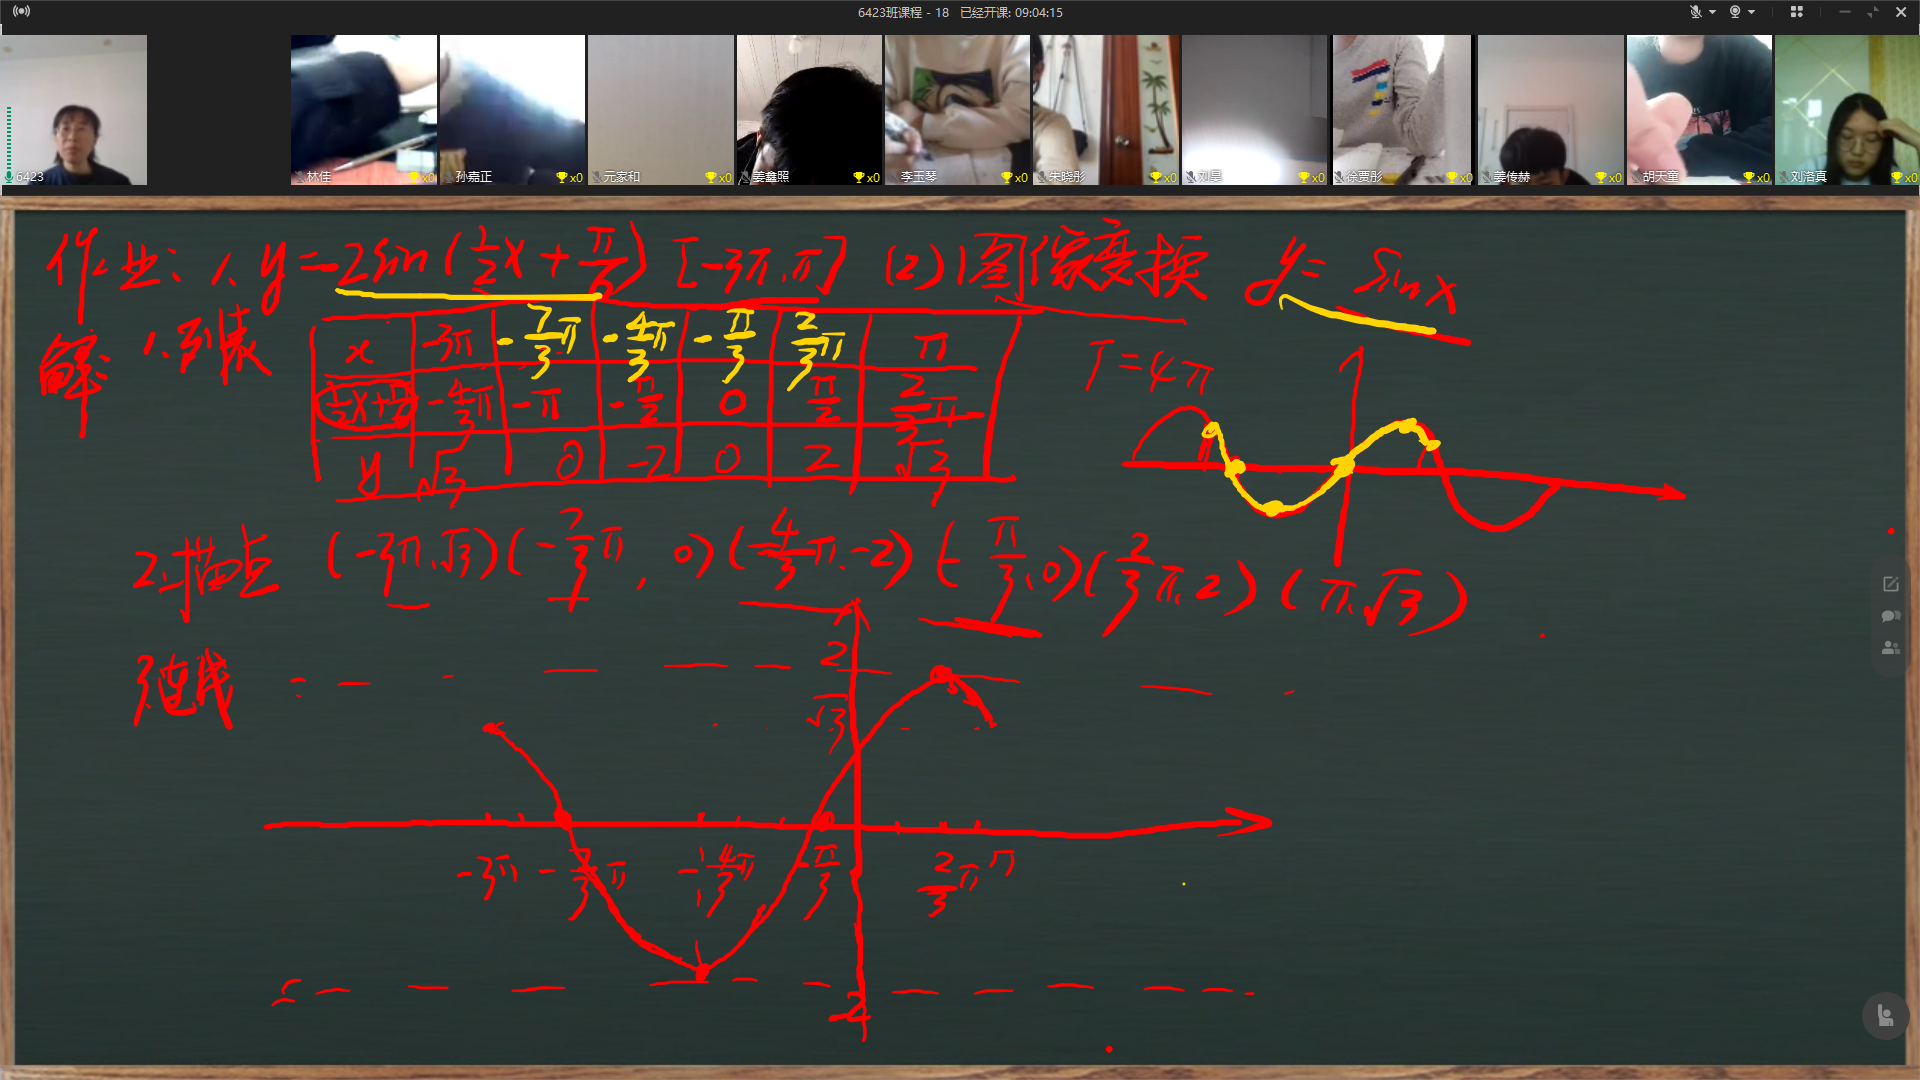 6423班课程 - 18 已经开课: 09:04:15
6423 林佳 x0 孙嘉正 x0 元家和 x0 姜鑫照 x0 李玉琴 x0 朱晓彤 x0 刘昊 x0 徐贾彤 x0 姜传赫 x0 胡天童 x0 刘洛真 x0
作业: 1. y=2sin(1/2x+π/6) [-3π,π] (2) 图像变换 y= sinx
解: 1.列表
x -3π -7/3π -4/3π -π/3 2/3π π
1/2x+π/6 -4/3π -π -π/2 0 π/2 2/3π
y √3 0 -2 0 2 √3
T=4π
2.描点 (-3π,√3)(-7/3π,0)(-4/3π,-2)(-π/3,0)(2/3π,2)(π,√3)
连线
2
√3
-3π -7/3π -4/3π -π/3 2/3π π
-2